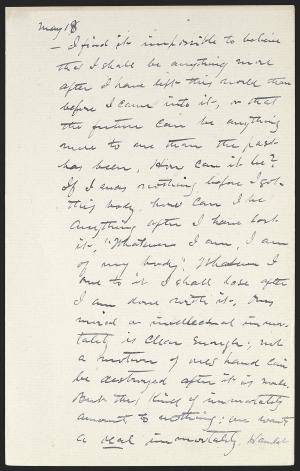 May 18
— I find it impossible to believe
that I shall be anything more
after I have left this world than
before I came into it, or that
the future can be anything
more to me than the past
has been. How can it be?
If I was nothing before I got
this body how can I be
anything after I have lost
it. "Whatever I am, I am
of my body". Whatever I
owe to it I shall lose after
I am done with it. Our
mind or intellectual immor-
tality is clear enough; not
a motion of one's hand can
be destroyed after it is made.
But this kind of immortality
amounts to nothing; we want
a real immortality.